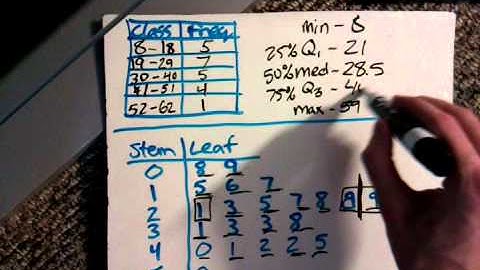 Class Freq.
8-18 5
19-29 7
30-40 5
41-51 4
52-62 1
min - 8
25% Q1 - 21
50% med - 28.5
75% Q3 -
max - 59
Stem Leaf
0 8 9
1 5 6 7
2 1 3 5 7 8
3 1 3 3 8
4 0 1 2 2 5